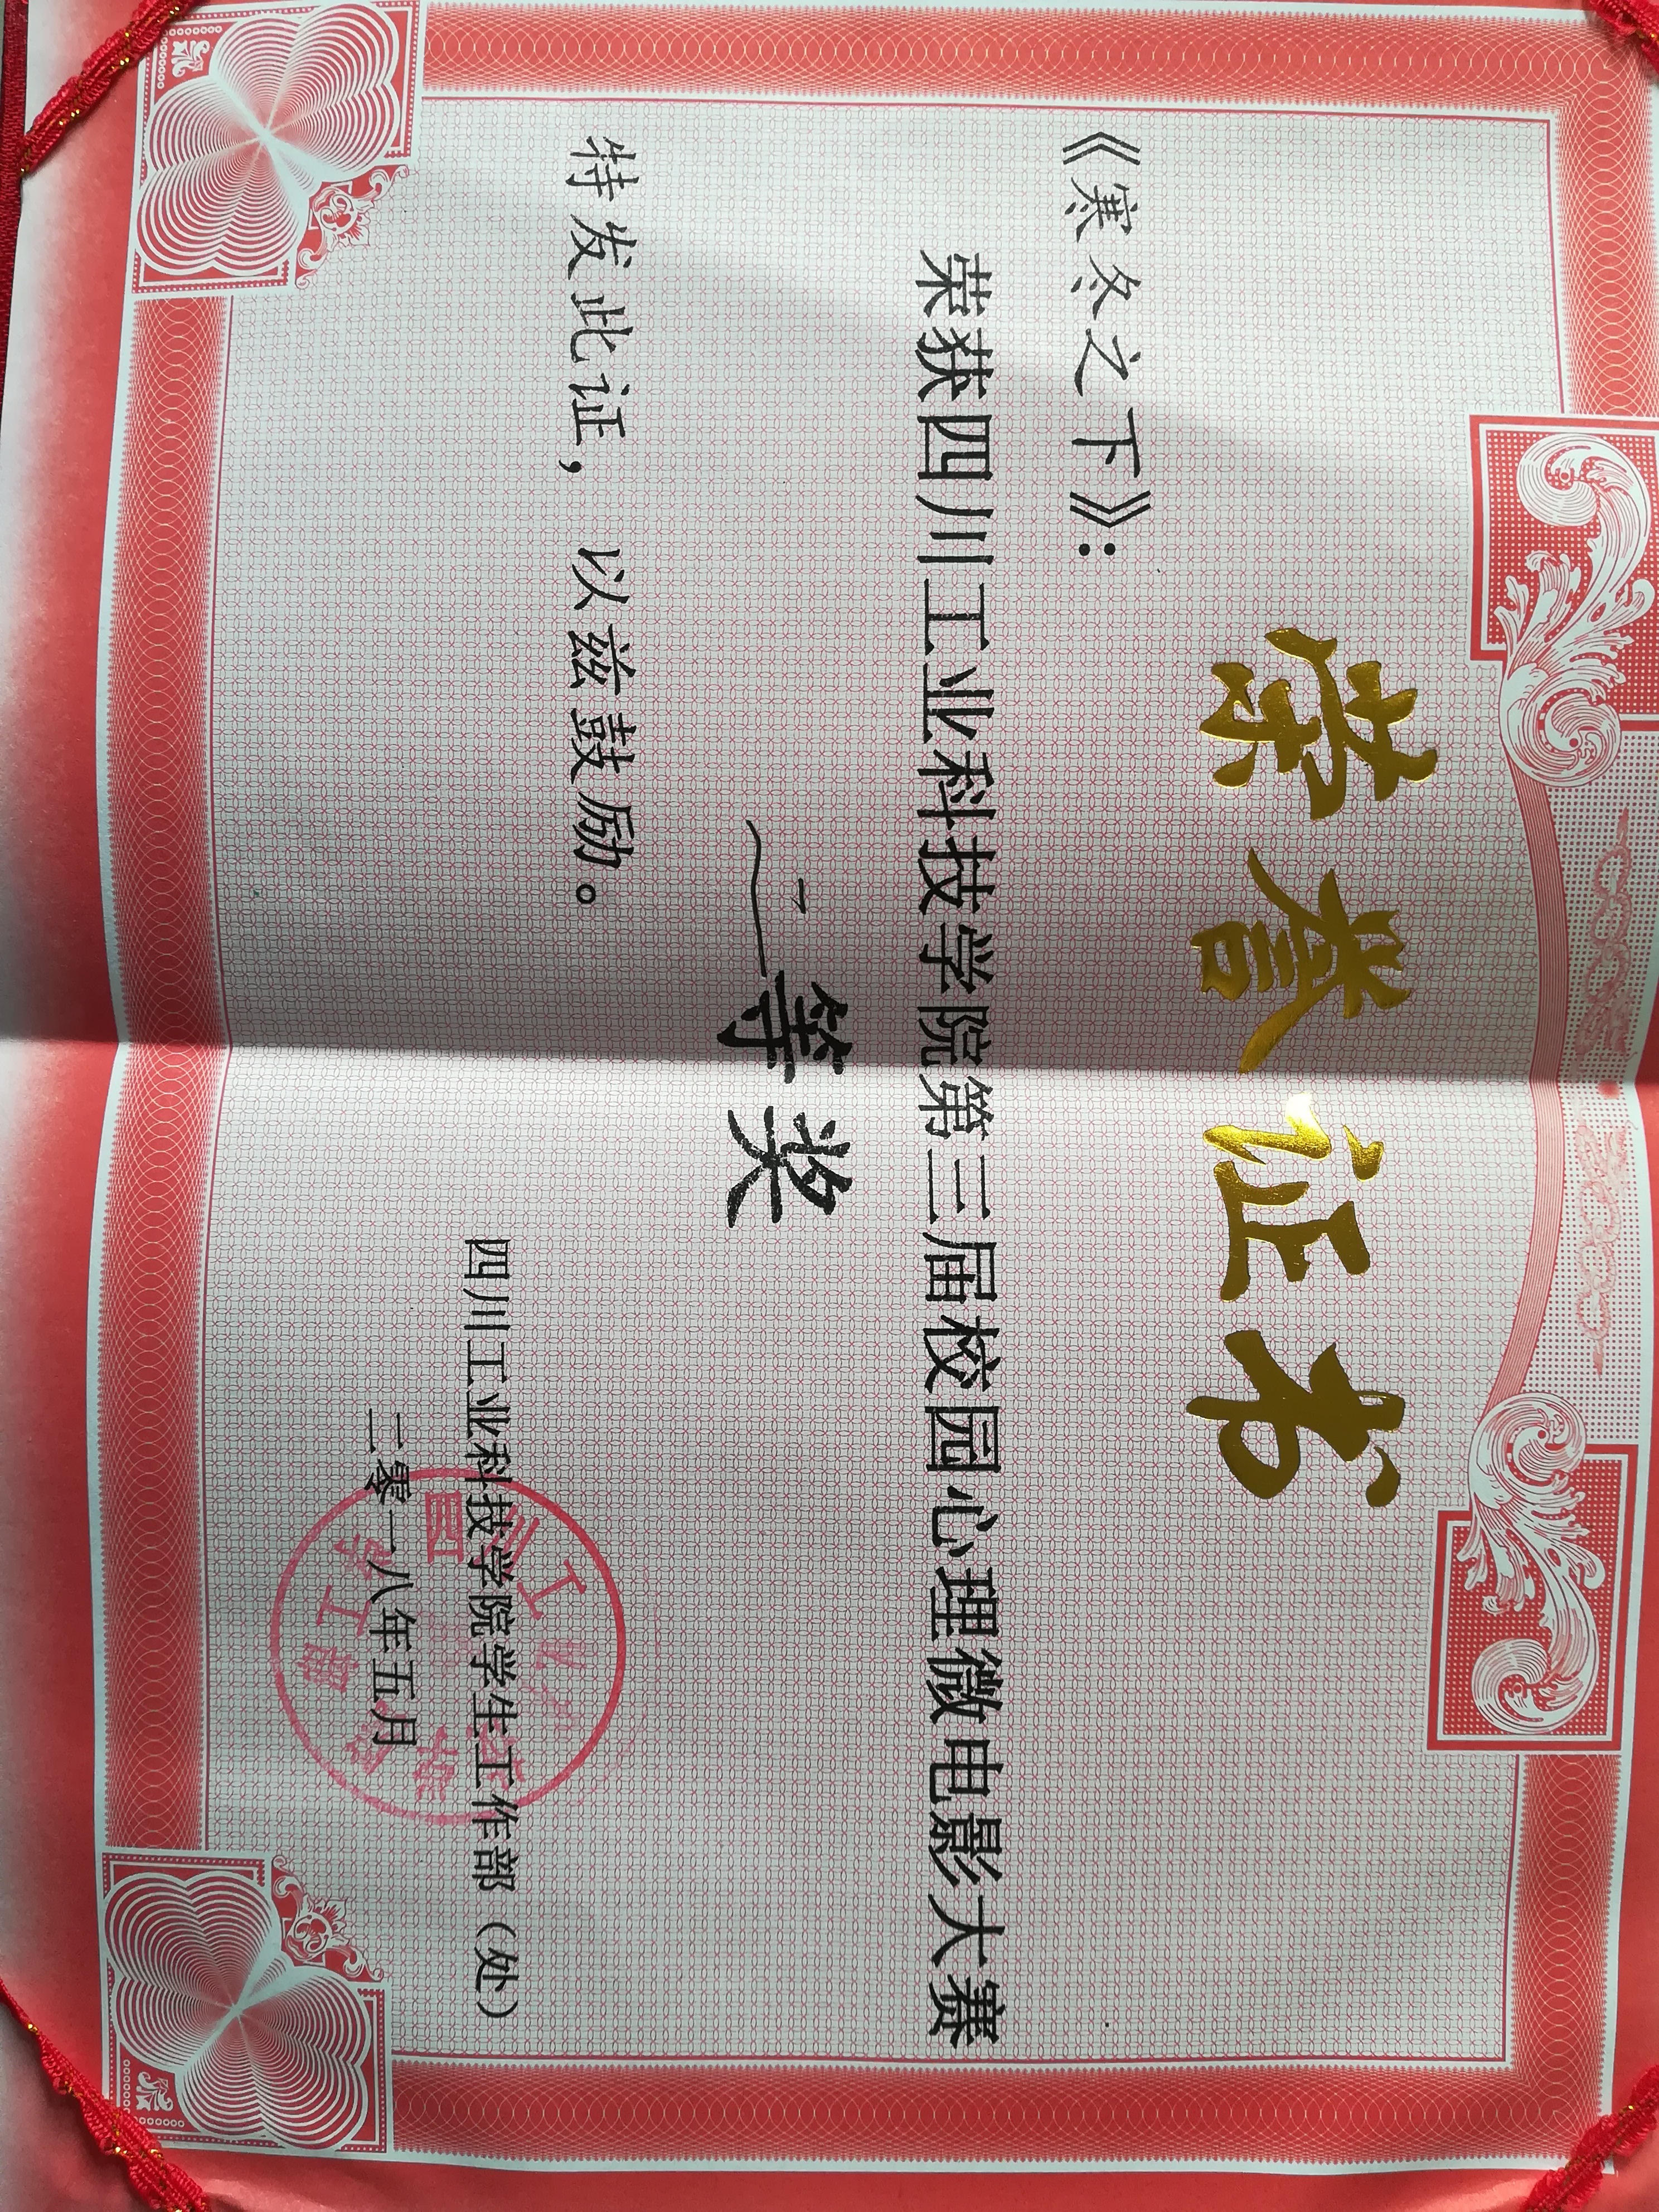 荣誉证书
《寒冬之下》：
荣获四川工业科技学院第三届校园心理微电影大赛
二等奖
特发此证，以兹鼓励。
四川工业科技学院学生工作部（处）
二零一八年五月